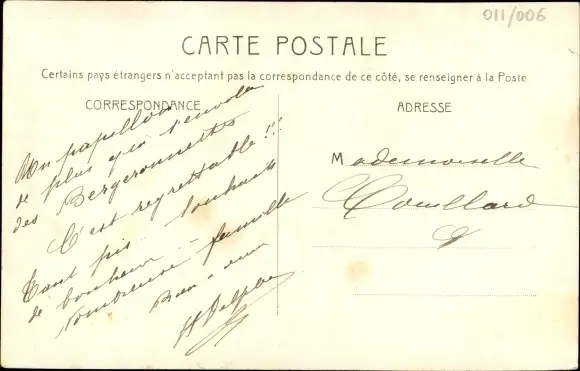 011/006
CARTE POSTALE
Certains pays étrangers n'acceptant pas la correspondance de ce côté, se renseigner à la Poste
CORRESPONDANCE
Un papillon
de plus qui s'envola
des Bergeronnettes
C'est regrettable!!!
Tant pis. Souhaits
de bonheur -
Nombreuse famille
Bien à
ADRESSE
Mademoiselle
Couillard